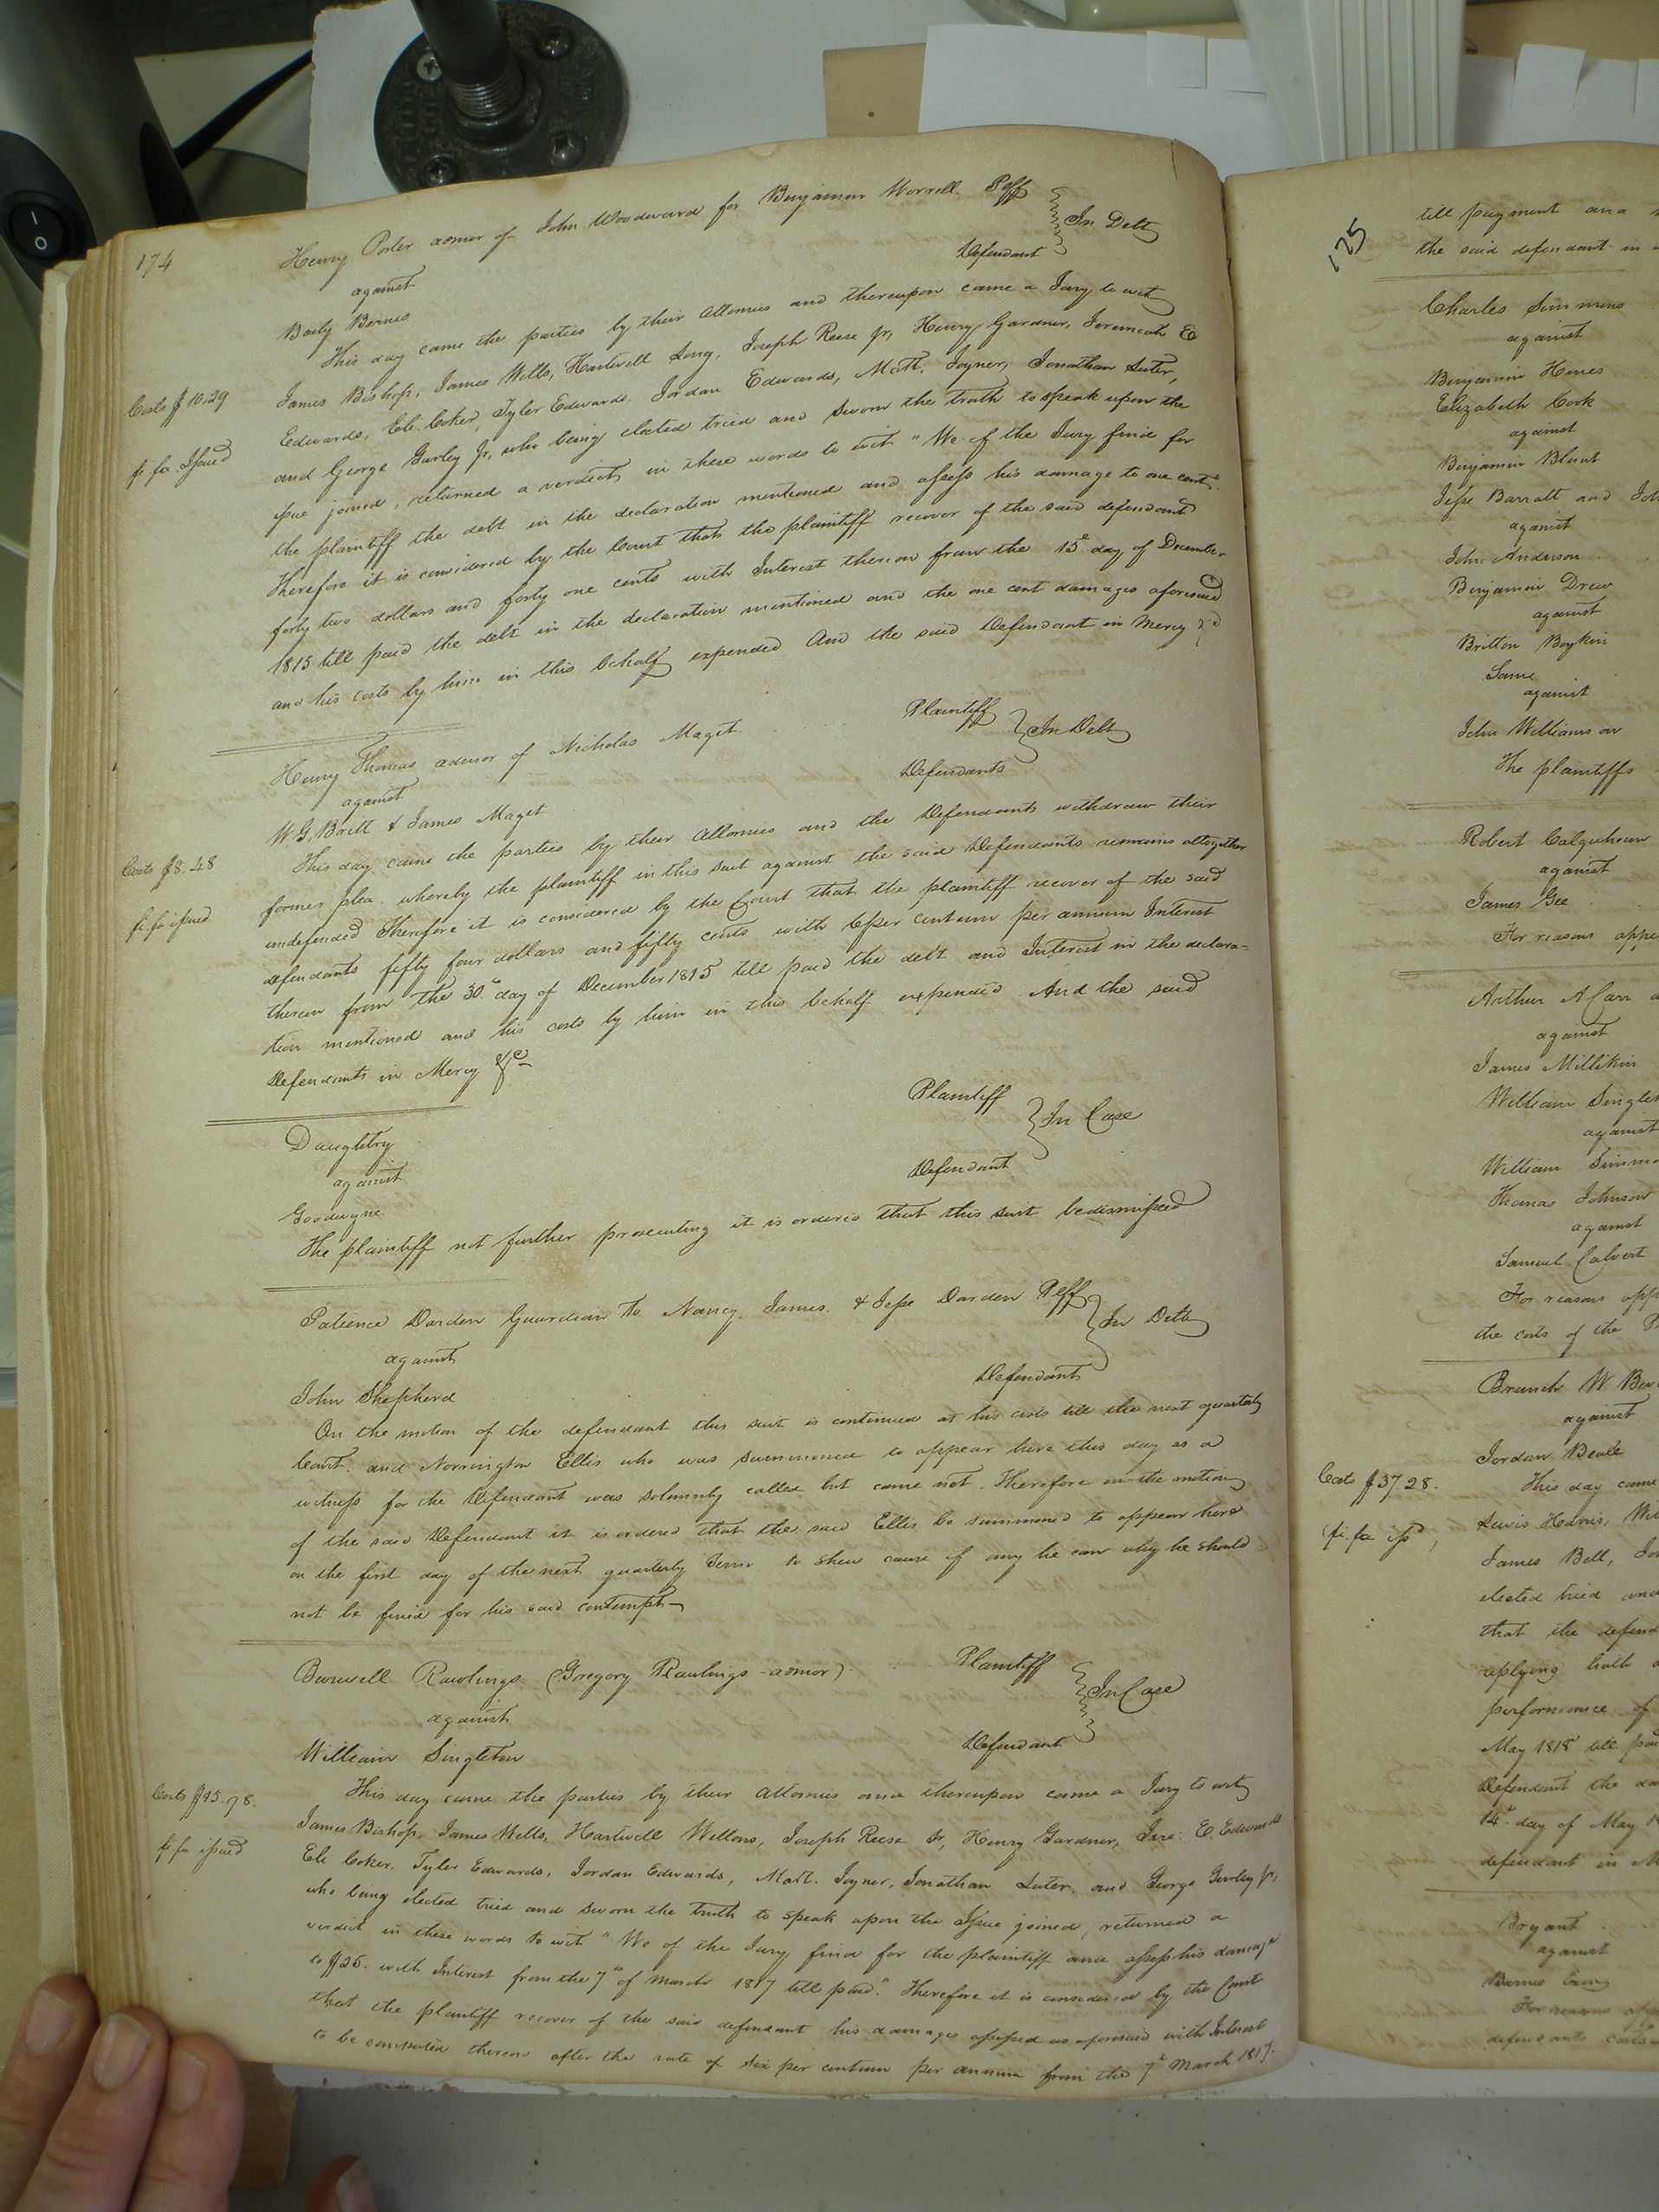 174
Henry Porter admor of John Woodward for Benjamin Worrell Plff
In Debt
against
Defendant
Barnes
This day came the parties by their Attornies and thereupon came a Jury to wit
Costs $10.29
James Bishop, James Wills, Hartwell Long, Joseph Reese Jr, Henry Gardner, Jeremiah E
Edwards, Eli Coker, Tyler Edwards, Jordan Edwards, Matt. Joyner, Jonathan Luter,
fi fa Issued
and George Gurley Jr, who being elected tried and sworn the truth to speak upon the
Issue joined, returned a verdict in these words to wit "We of the Jury find for
the plaintiff the debt in the declaration mentioned and assess his damage to one cent"
Therefore it is considered by the Court that the plaintiff recover of the said defendant
forty two dollars and forty one cents with Interest thereon from the 15th day of December
1815 till paid the debt in the declaration mentioned and the one cent damages aforesaid
and his costs by him in this behalf expended And the said Defendant in Mercy &c
Henry Thomas admor of Nicholas Maget
Plaintiff
In Debt
against
Defendants
W. G. Britt & James Maget
This day came the parties by their Attornies and the Defendants withdraw their
Costs $8.48
former plea. whereby the plaintiff in this suit against the said Defendants remains altogether
undefended Therefore it is considered by the Court that the plaintiff recover of the said
fi fa issued
defendants fifty four dollars and fifty cents with 6 per centum per annum Interest
thereon from the 30th day of December 1815 till paid the debt and Interest in the declara=
tion mentioned and his costs by him in this behalf expended And the said
Defendants in Mercy &c
Daughtry
Plaintiff
In Case
against
Defendant
Goodwyne
The plaintiff not further prosecuting it is ordered that this suit be dismissed
Patience Darden Guardian to Nancy, James, & Jesse Darden Plff
In Debt
against
Defendant
John Shepherd
On the motion of the defendant this suit is continued at his costs till the next quarterly
Court. and Norrington Ellis who was summoned to appear here this day as a
witness for the Defendant was solemnly called but came not. Therefore on the motion
of the said Defendant it is ordered that the said Ellis be summoned to appear here
on the first day of the next quarterly Term to shew cause if any he can why he should
not be fined for his said contempt
Burwell Rawlings (Gregory Rawlings admor)
Plaintiff
In Case
against
Defendant
William Singleton
This day came the parties by their Attornies and thereupon came a Jury to wit
Costs $15.78.
James Bishop, James Wills, Hartwell Wellons, Joseph Reese Jr, Henry Gardner, Jere: E. Edwards
fi fa issued
Eli Coker, Tyler Edwards, Jordan Edwards, Matt. Joyner, Jonathan Luter, and George Gurley Jr,
who being elected tried and sworn the truth to speak upon the Issue joined, returned a
verdict in these words to wit "We of the Jury find for the plaintiff and assess his damage
to $25. with Interest from the 7th of March 1817 till paid." Therefore it is considered by the Court
that the plaintiff recover of the said defendant his damages assessed as aforesaid with Interest
to be computed thereon after the rate of six per centum per annum from the 7th March 1817.
till payment and
the said defendant in
Charles Simmons
against
Benjamin Hines
Elizabeth Cook
against
Benjamin Blunt
Jesse Barratt and
against
John Anderson
Benjamin Drew
against
Britton Boykin
Same
against
John Williamson
The plaintiffs
Robert Colquhoun
against
James Gee
For reasons
Arthur A Carr
against
James Millikin
William
against
William
Thomas Johnson
against
Samuel Calvert
For reasons
the costs of the
Branch W
against
Jordan Beale
Costs $37.28.
This day came
fi fa
Lewis Harris,
James Bell,
elected tried and
that the
replying
performance of
May 1818 till
Defendant the
14th day of May
defendant in
Bryant
against
Barnes
For reasons
defendants costs